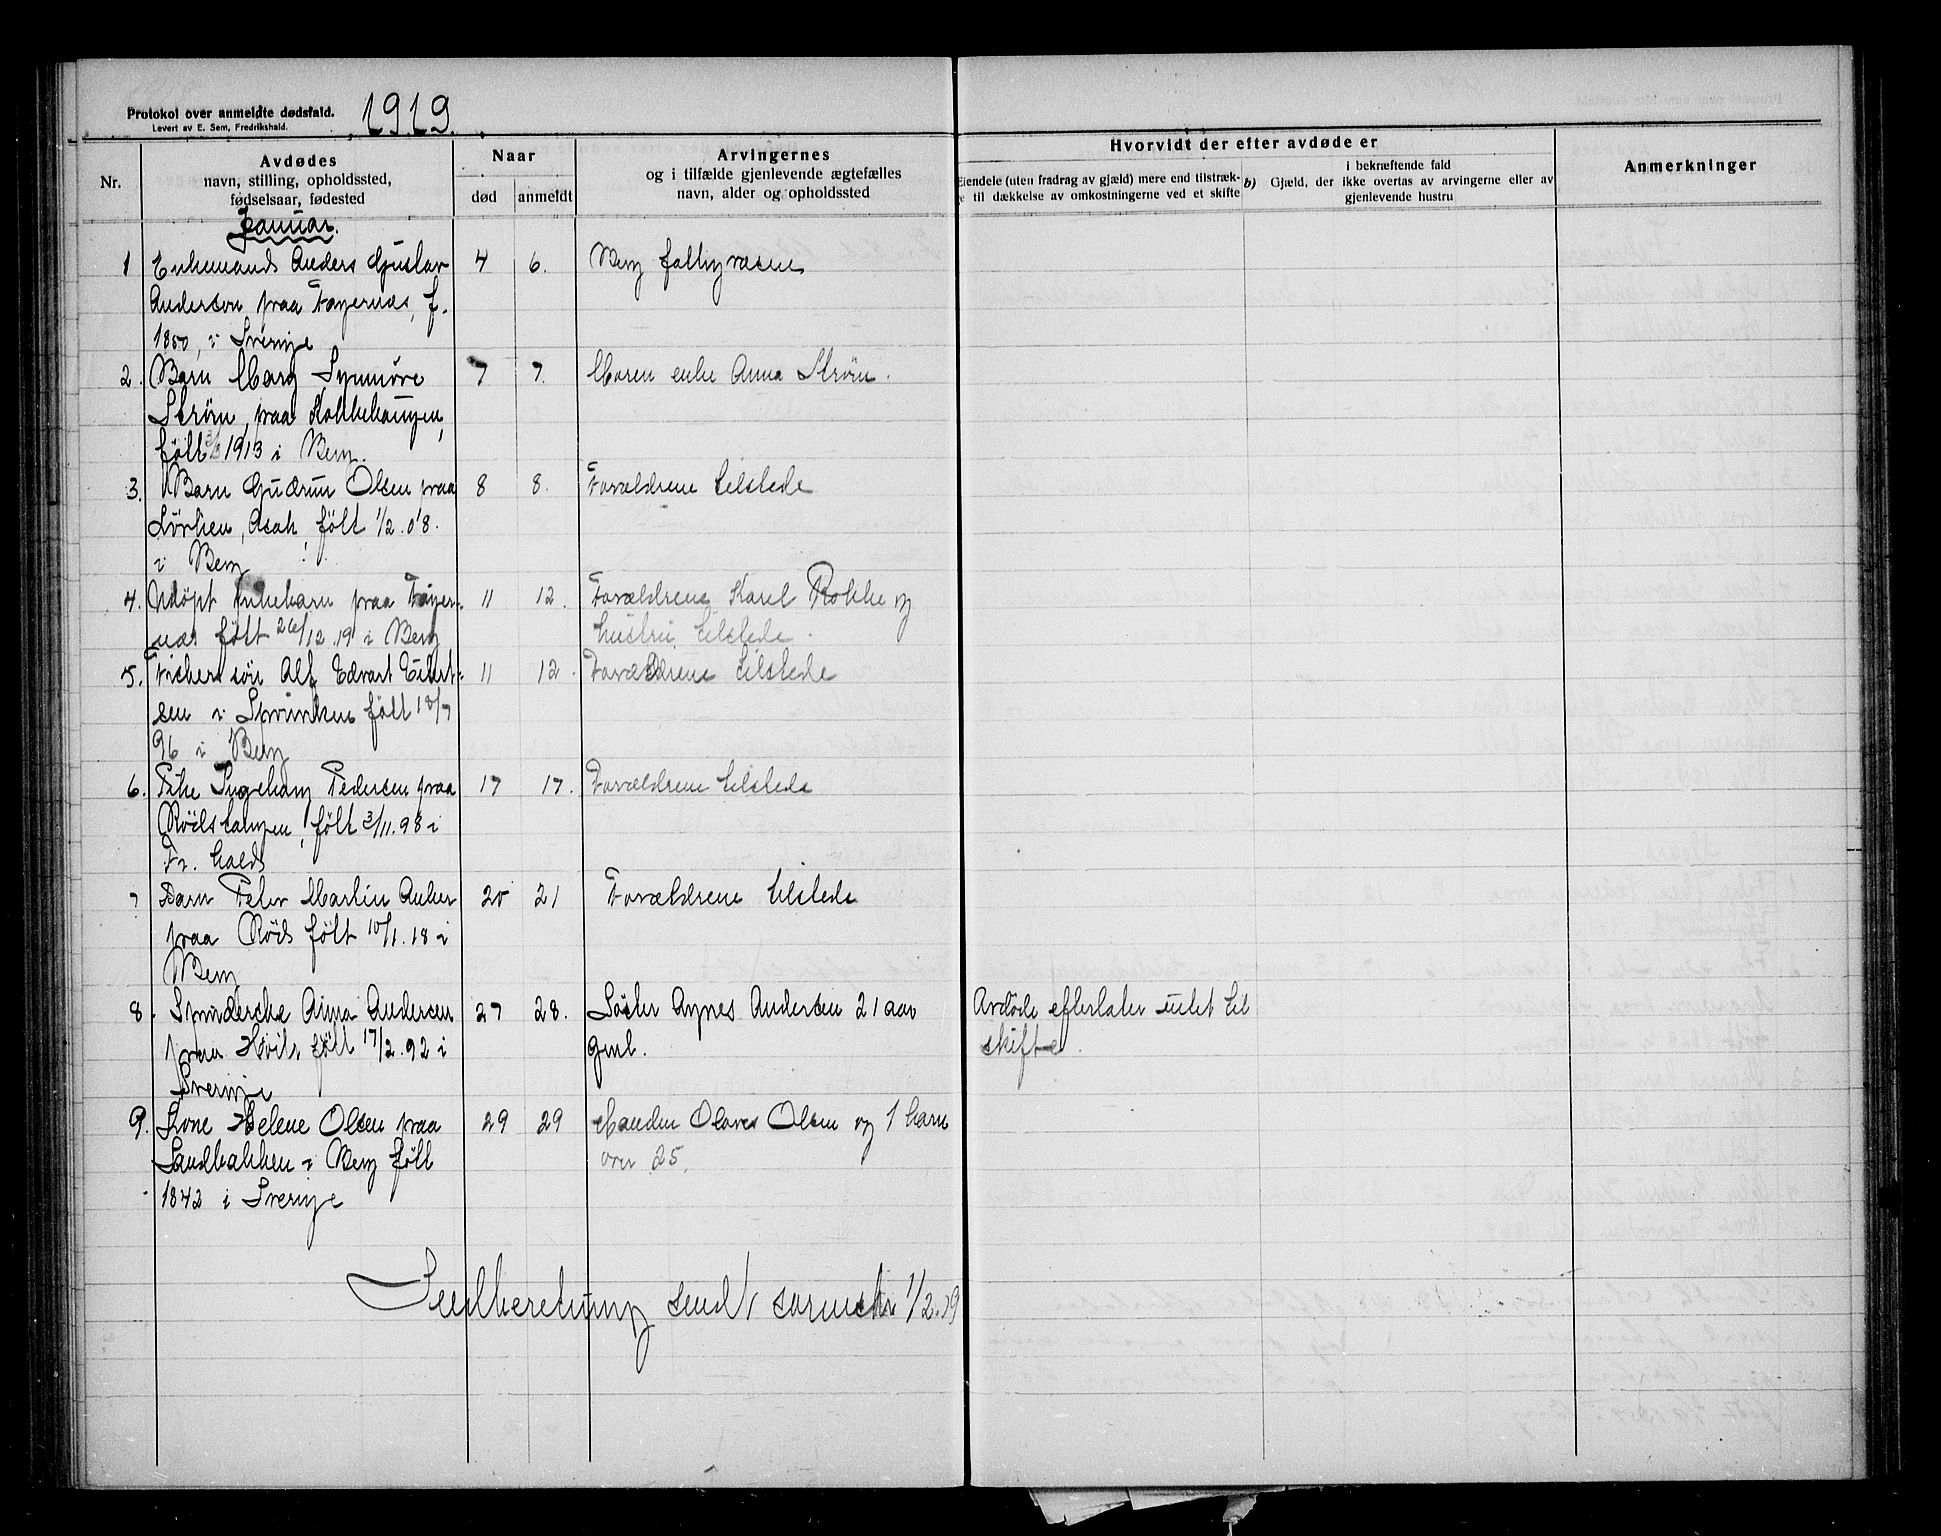 Protokol over anmeldte dødsfald.
Levert av E. Sem, Fredrikshald.
1919.
Nr.
Avdødes
navn, stilling, opholdssted,
fødselsaar, fødested
Naar
død
anmeldt
Arvingernes
og i tilfælde gjenlevende ægtefælles
navn, alder og opholdssted
Hvorvidt der efter avdøde er
Eiendele (uten fradrag av gjæld) mere end tilstræk-
e til dækkelse av omkostningerne ved et skifte
b) Gjæld, der
i bekræftende fald
ikke overtas av arvingerne eller av
gjenlevende hustru
Anmerkninger
Januar.
1 Enkemands Anders Gustav 4 6. Berg fattigvæsen
Anderson paa Fagernæs, f.
1850, i Sverige
2. Barn Marg Synnøve 7 7. Moren enke Anna Strøm.
Strøm, paa Kokkehaugen,
født 1913 i Berg.
3. Barn Gudrun Olsen paa 8 8. Forældrene tilstede
Sørlien, Asak, født 1/2.08.
i Berg
4. Udøpt pikebarn paa Fager- 11 12. Forældrene Karel Rokke og
næs født 26/12.19 i Berg hustru tilstede.
5. Fisker søn Alf Edvart Eilert- 11 12. Forældrene tilstede
sen i Sponviken født 18/7
96 i Berg
6. Pike Ingeborg Pedersen paa 17 17. Forældrene tilstede
Rödstangen, født 3/11.98 i
Fr. hald
7 Barn Peter Martin Anker 20 21 Forældrene tilstede
paa Röds født 10/1.18 i
Berg
8. Spinderske Anna Andersen 27 28. Søster Agnes Andersen 21 aar Avdøde efterlater intet til
paa født 17/2.92 i gml. skifte.
Sverige
9. Kone Helene Olsen paa 29 29 Manden Olaves Olsen og 1 barn
Sandbakken i Berg født over 25.
1842 i Sverige
Indberetning sendt sorenskr 1/2.19